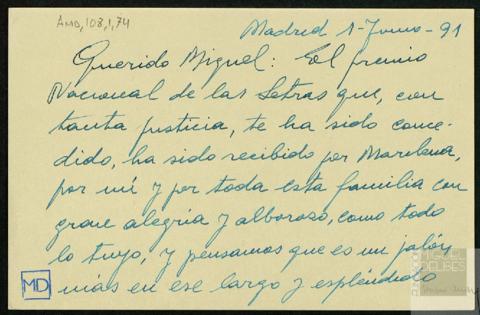 AMD, 108, 1, 74
Madrid 1-Junio-91
Querido Miguel: El premio
Nacional de las Letras que, con
tanta justicia, te ha sido conce-
dido, ha sido recibido por Marilena,
por mí y por toda esta familia con
grane alegria y alboroso, como todo
lo tuyo, y pensamos que es un jalón
más en ese largo y espléndido
MD
FUNDACIÓN
MIGUEL
DELIBES